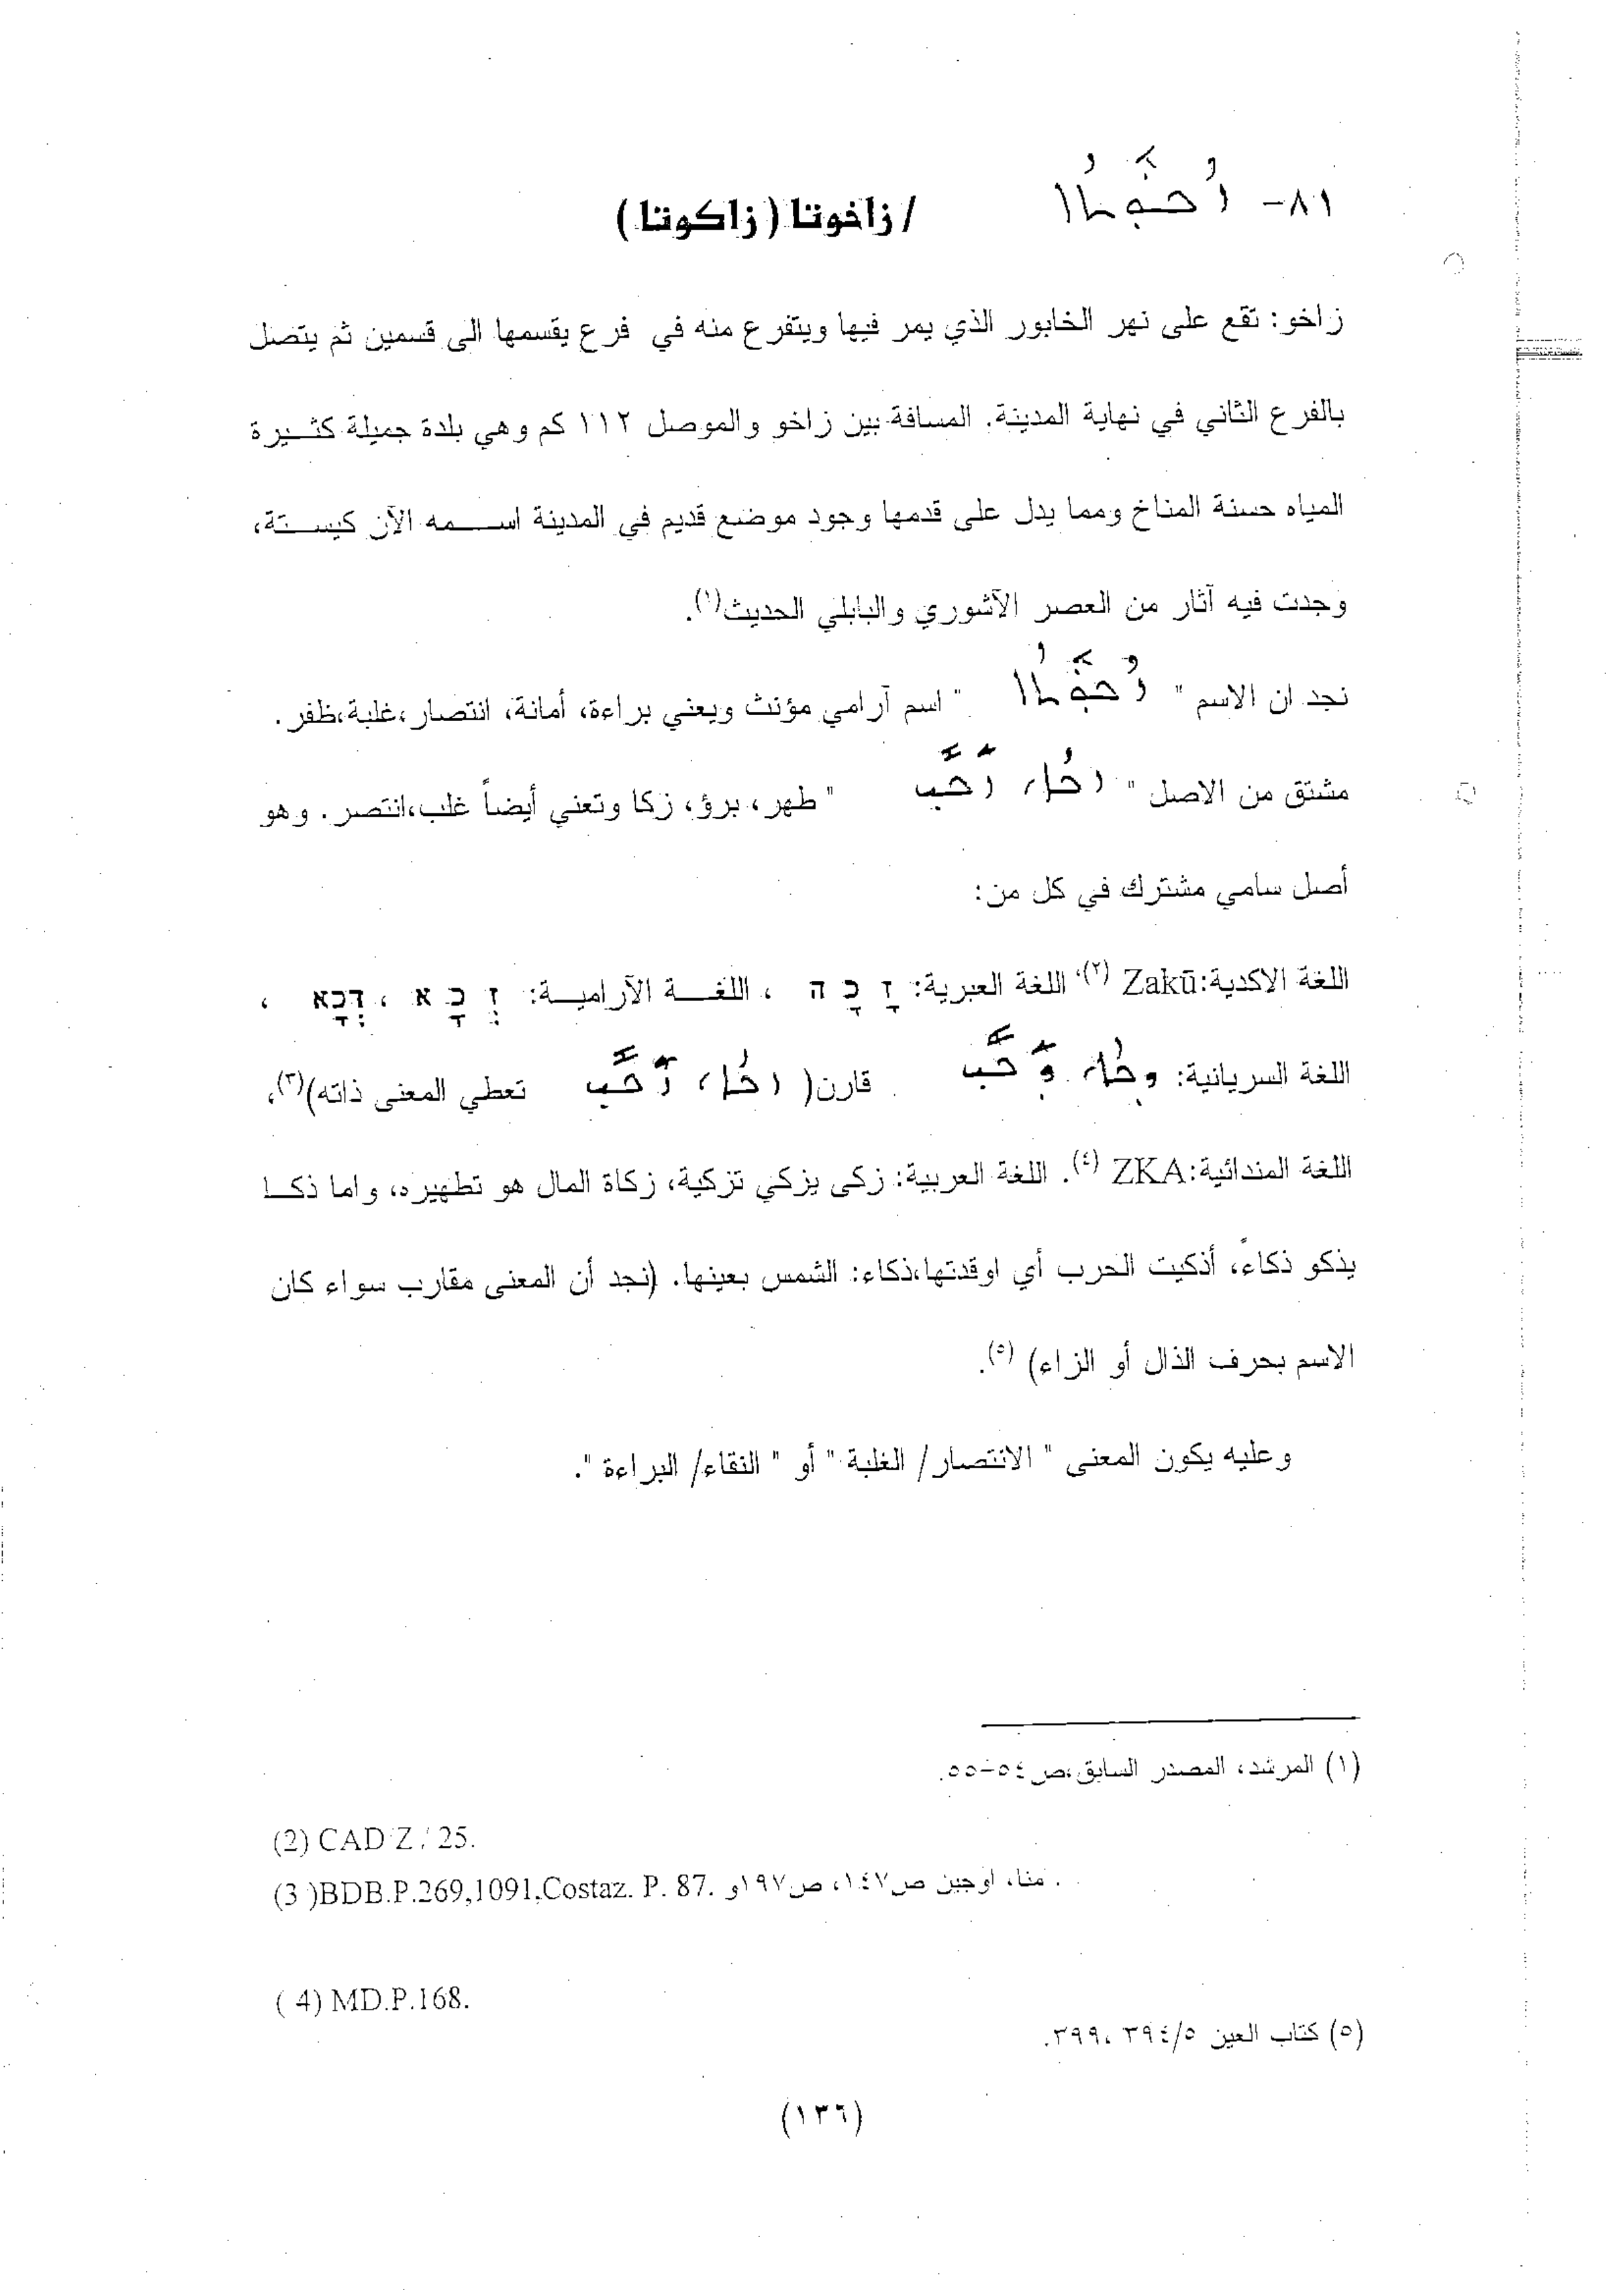 ٨١- ܙܟܘܬܐ / زاخوتا (زاكوتا)
زاخو: تقع على نهر الخابور الذي يمر فيها ويتفرع منه في فرع يقسمها الى قسمين ثم يتصل
بالفرع الثاني في نهاية المدينة. المسافة بين زاخو والموصل ١١٢ كم وهي بلدة جميلة كثيرة
المياه حسنة المناخ ومما يدل على قدمها وجود موضع قديم في المدينة اسمه الآن كيستة،
وجدت فيه آثار من العصر الآشوري والبابلي الحديث(١).
نجد ان الاسم " ܙܟܘܬܐ " اسم آرامي مؤنث ويعني براءة، أمانة، انتصار،غلبة،ظفر.
مشتق من الاصل " ܙܟܐ، ܙܟܝ " طهر، برؤ، زكا وتعني أيضاً غلب،انتصر. وهو
أصل سامي مشترك في كل من:
اللغة الاكدية:Zakū (٢)، اللغة العبرية: זָכָה ، اللغة الآرامية: זְכָא ، דְּכָא ،
اللغة السريانية: ܕܟܐ، ܕܟܝ قارن( ܙܟܐ، ܙܟܝ تعطي المعنى ذاته)(٣)،
اللغة المندائية:ZKA (٤). اللغة العربية: زكى يزكي تزكية، زكاة المال هو تطهيره، واما ذكا
يذكو ذكاءً، أذكيت الحرب أي اوقدتها،ذكاء: الشمس بعينها. (نجد أن المعنى مقارب سواء كان
الاسم بحرف الذال أو الزاء) (٥).
وعليه يكون المعنى " الانتصار/ الغلبة " أو " النقاء/ البراءة ".
(١) المرشد، المصدر السابق،ص٥٤-٥٥.
(2) CAD Z, 25.
(3 )BDB.P.269,1091,Costaz. P. 87. منا، اوجين ص١٤٧، ص١٩٧و .
( 4) MD.P.168.
(٥) كتاب العين ٣٩٤/٥ ،٣٩٩.
(١٣٦)